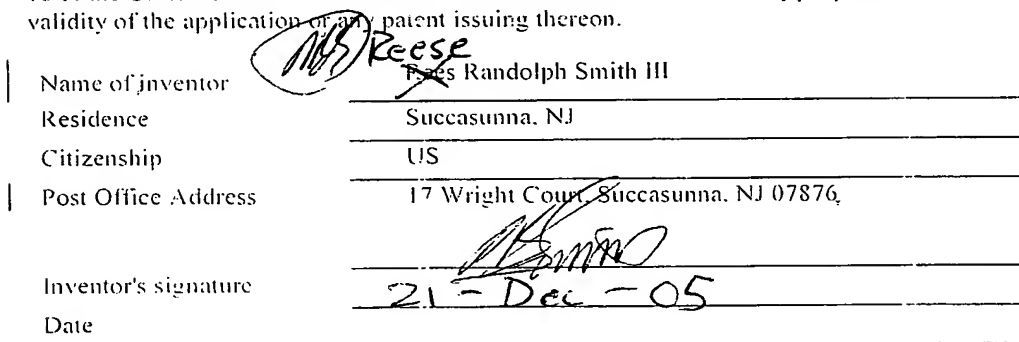 validity of the application or any patent issuing thereon.
Reese
Name of inventor Rees Randolph Smith III
Residence Succasunna, NJ
Citizenship US
Post Office Address 17 Wright Court, Succasunna, NJ 07876,
Inventor's signature
21 - Dec - 05
Date